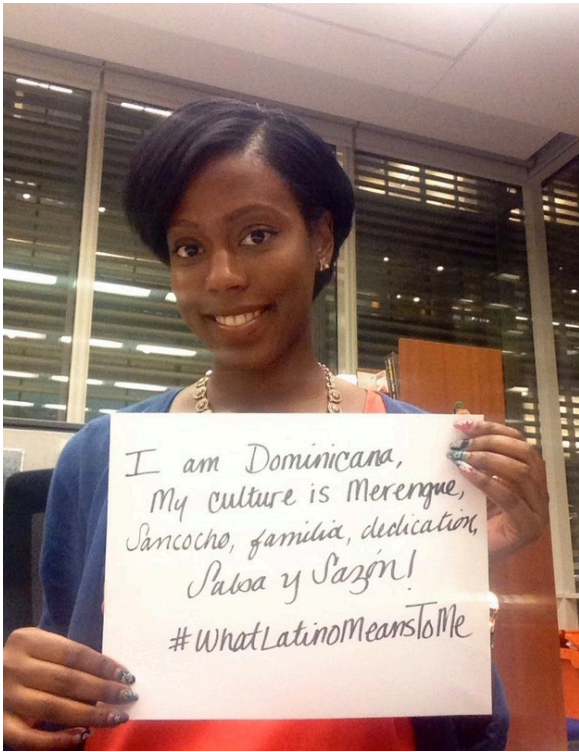 I am Dominicana,
My culture is Merengue,
Sancocho, familia, dedication,
Salsa y Sazón!
#WhatLatinoMeansToMe